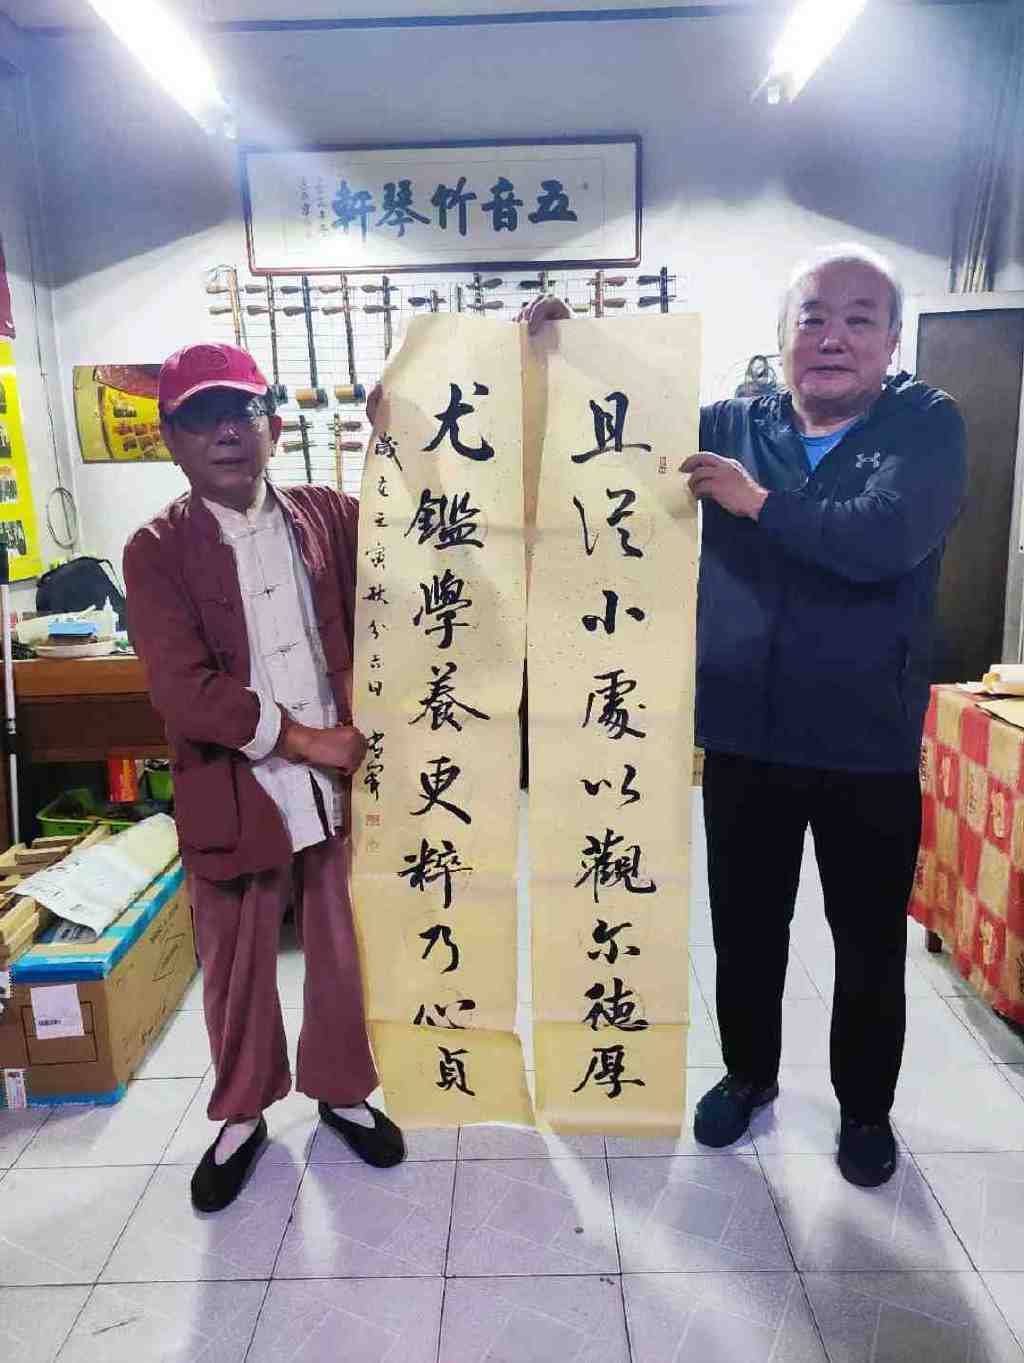 五音竹琴軒
且從小處以觀尔德厚
尤鑑學養更粹乃心貞
歲在壬寅秋分六日